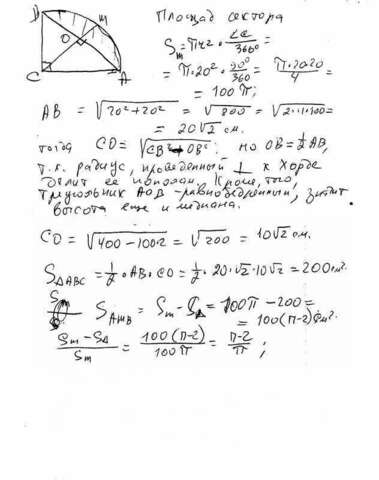 В
O
m
C
A
Площад сектора
Sm = πr² · ∠α/360° =
= π·20² · 90°/360 = π·20·20/4 =
= 100π;
AB = √(20²+20²) = √800 = √(2·4·100) =
= 20√2 см.
тогда CO = √(CB² - OB²) но OB = ½AB,
т.к. радиус, проведенный ⊥ к хорде
делит ее пополам. Кроме, того,
треугольник AOB - равнобедренный, значит
высота еще и медиана.
CO = √(400 - 100·2) = √200 = 10√2 см.
S△ABC = ½ · AB · CO = ½ · 20·√2·10√2 = 200 см².
Sm
SAmB = Sm - S△ = 100π - 200 =
= 100(π-2) см²
(Sm - S△)/Sm = 100(π-2)/100π = (π-2)/π ;